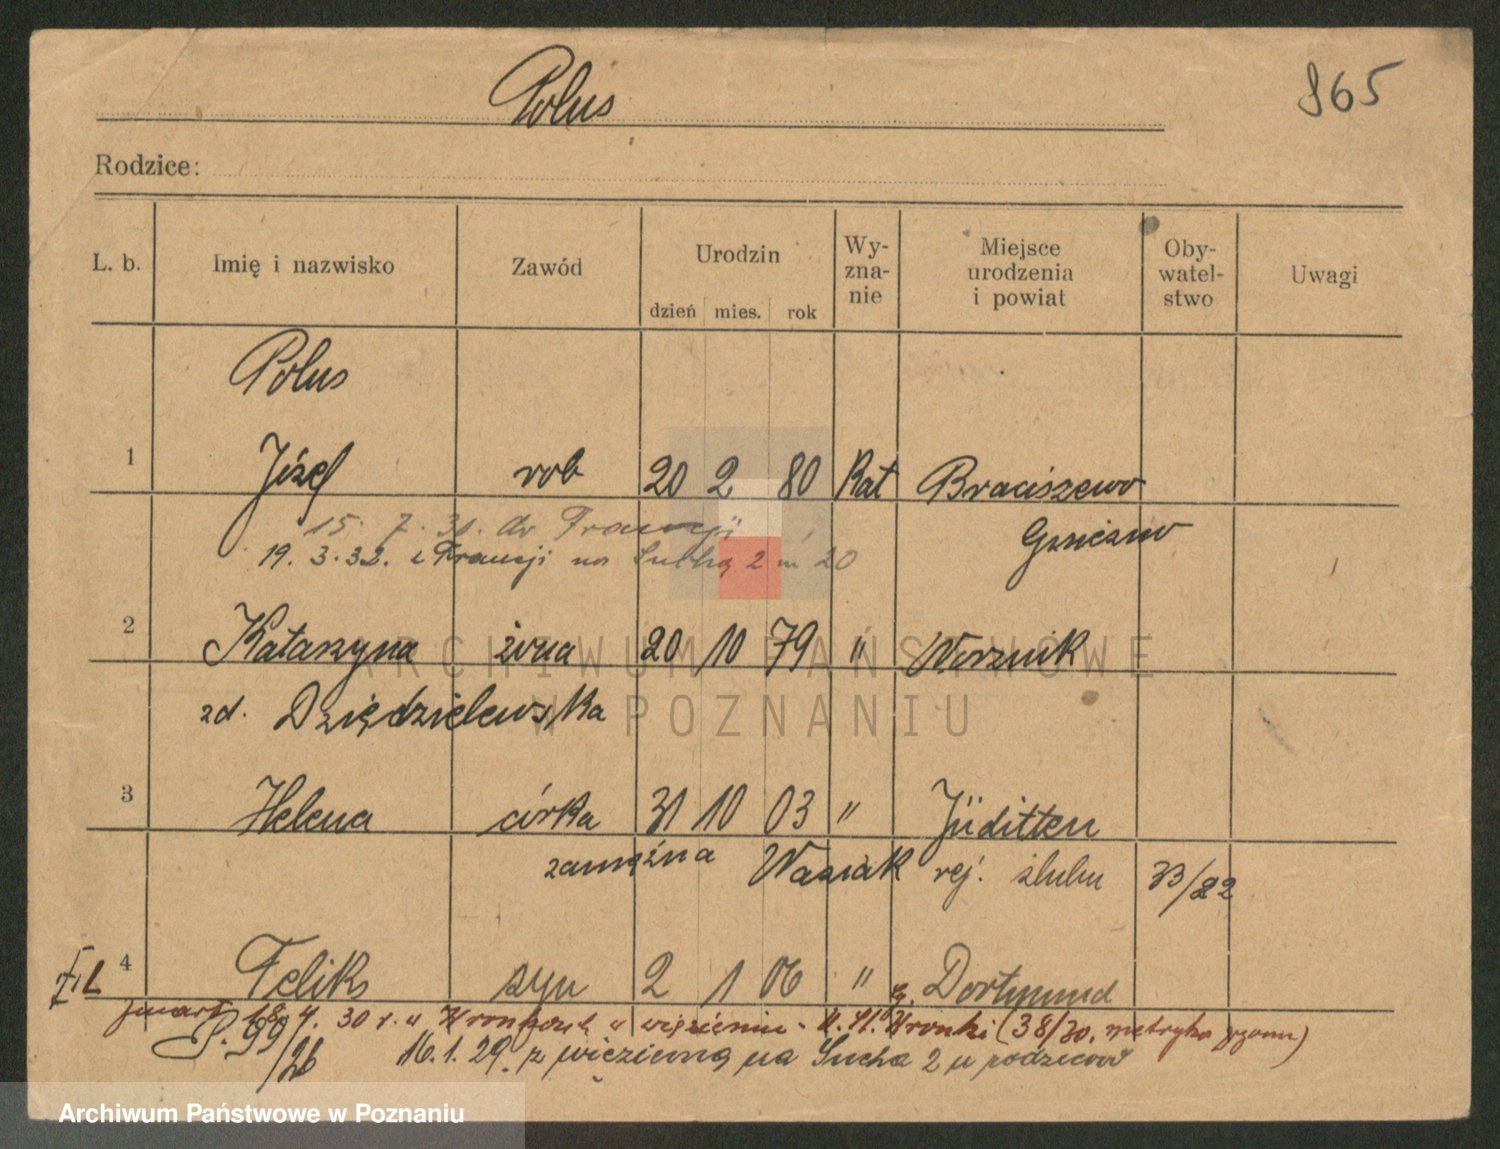 Polus
865
Rodzice:
L. b. Imię i nazwisko Zawód Urodzin Wy-zna-nie Miejsce urodzenia i powiat Oby-watel-stwo Uwagi
dzień mies. rok
Polus
1 Józef rob 20 2 80 Kat Braciszewo
15. 7. 31. do Francji Gniezno
19. 3. 32. z Francji na Suchą 2 m 20
2 Katarzyna żona 20 10 79 " Worznik
zd. Dziędzielewska
3 Helena córka 31 10 03 " Jüditten
zamężna Waziak rej. ślubu 33/22
4 Feliks syn 2 1 06 " Dortmund
zmarł 18. 4. 30 r. w Wronkach w więzieniu - U. St. Wronki (38/30. metryka zgonu)
P. 99/26 16. 1. 29. z więzienia na Sucha 2 u rodziców
ARCHIWUM PAŃSTWOWE
W POZNANIU
Archiwum Państwowe w Poznaniu